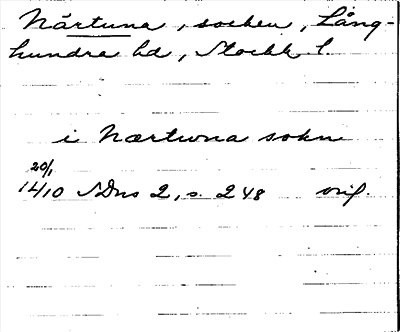 Närtuna, socken, Lång-
hundra hd, Stockh l.
i Nærtwna sokn
20/1
1410 SDns 2, s. 248 orig.